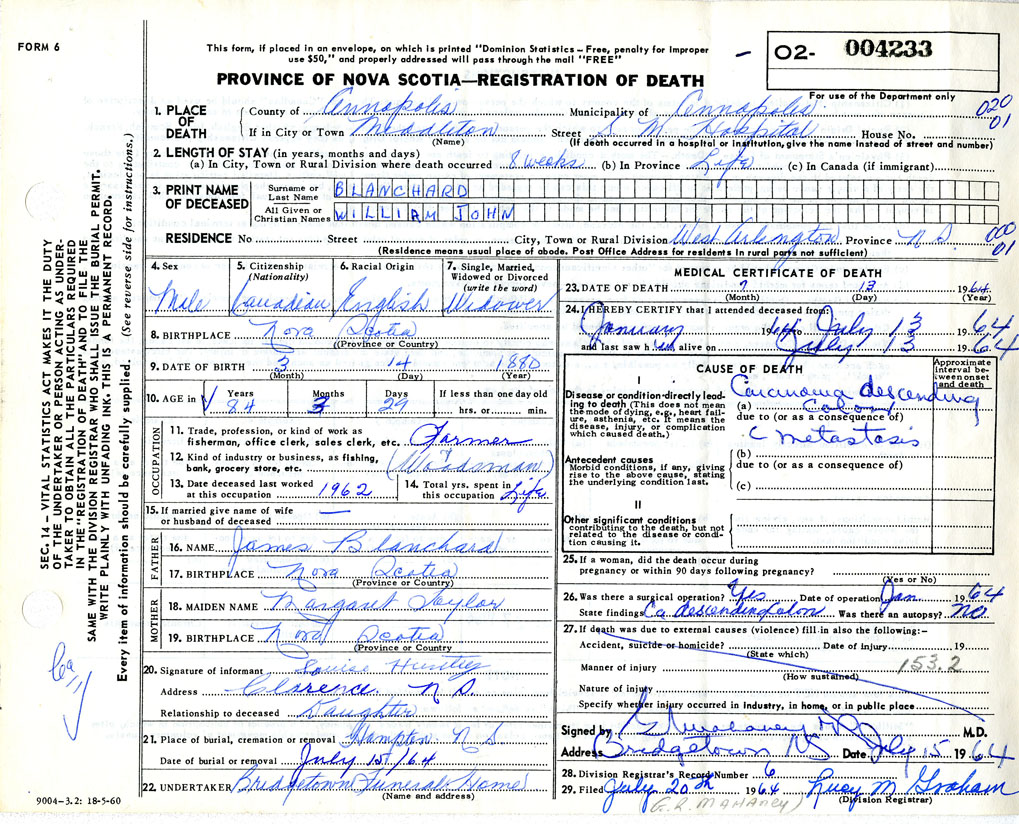 FORM 6
This form, if placed in an envelope, on which is printed "Dominion Statistics – Free, penalty for improper
use $50," and properly addressed will pass through the mail "FREE"
02- 004233
PROVINCE OF NOVA SCOTIA—REGISTRATION OF DEATH
For use of the Department only
1. PLACE OF DEATH
County of Annapolis Municipality of Annapolis 020 01
If in City or Town Middleton Street S M Hospital House No.
(Name) (If death occurred in a hospital or institution, give the name instead of street and number)
2. LENGTH OF STAY (in years, months and days)
(a) In City, Town or Rural Division where death occurred 8 weeks (b) In Province Life (c) In Canada (if immigrant)
3. PRINT NAME OF DECEASED
Surname or Last Name BLANCHARD
All Given or Christian Names WILLIAM JOHN
RESIDENCE No Street City, Town or Rural Division West Arlington Province N S. 000 01
(Residence means usual place of abode. Post Office Address for residents in rural parts not sufficient)
4. Sex 5. Citizenship (Nationality) 6. Racial Origin 7. Single, Married, Widowed or Divorced (write the word)
Male Canadian English Widower
8. BIRTHPLACE Nova Scotia
(Province or Country)
9. DATE OF BIRTH 3 14 1880
(Month) (Day) (Year)
10. AGE in Years Months Days If less than one day old
84 3 29 hrs. or min.
OCCUPATION
11. Trade, profession, or kind of work as
fisherman, office clerk, sales clerk, etc. Farmer
12. Kind of industry or business, as fishing,
bank, grocery store, etc. (Woodsman)
13. Date deceased last worked at this occupation 1962 14. Total yrs. spent in this occupation Life
15. If married give name of wife
or husband of deceased —
FATHER
16. NAME James Blanchard
17. BIRTHPLACE Nova Scotia
(Province or Country)
MOTHER
18. MAIDEN NAME Margaret Taylor
19. BIRTHPLACE Nova Scotia
(Province or Country)
20. Signature of informant Louise Huntley
Address Clarence N S.
Relationship to deceased Daughter
21. Place of burial, cremation or removal Hampton N S
Date of burial or removal July 15/64
22. UNDERTAKER Bridgetown Funeral Home
(Name and address)
9004–3.2: 18-5-60
MEDICAL CERTIFICATE OF DEATH
23. DATE OF DEATH 7 13 1964
(Month) (Day) (Year)
24. I HEREBY CERTIFY that I attended deceased from:
January 1964 to July 13 1964
and last saw him alive on July 13 1964
CAUSE OF DEATH
Approximate interval between onset and death
I
Disease or condition directly leading to death (This does not mean the mode of dying, e.g., heart failure, asthenia, etc. It means the disease, injury, or complication which caused death.)
(a) Carcinoma descending Colon
due to (or as a consequence of)
c metastasis
Antecedent causes
Morbid conditions, if any, giving rise to the above cause, stating the underlying condition last.
(b)
due to (or as a consequence of)
(c)
II
Other significant conditions
contributing to the death, but not related to the disease or condition causing it.
25. If a woman, did the death occur during
pregnancy or within 90 days following pregnancy?
(Yes or No)
26. Was there a surgical operation? Yes Date of operation Jan 1964
State findings Ca. descending Colon Was there an autopsy? No
27. If death was due to external causes (violence) fill in also the following:–
Accident, suicide or homicide? Date of injury 19
(State which)
Manner of injury 153.2
(How sustained)
Nature of injury
Specify whether injury occurred in Industry, in home, or in public place
Signed by G R Mahaney MD M.D.
Address Bridgetown NS Date July 15 1964
28. Division Registrar's Record Number 6
29. Filed July 20th 1964 Lucy M Graham
(G.R. MAHANEY) (Division Registrar)
SEC. 14 – VITAL STATISTICS ACT MAKES IT THE DUTY
OF THE UNDERTAKER OR PERSON ACTING AS UNDER-
TAKER TO OBTAIN ALL THE PARTICULARS REQUIRED
IN THE "REGISTRATION OF DEATH" AND TO FILE THE
SAME WITH THE DIVISION REGISTRAR WHO SHALL ISSUE THE BURIAL PERMIT.
WRITE PLAINLY WITH UNFADING INK. THIS IS A PERMANENT RECORD.
Every item of information should be carefully supplied. (See reverse side for instructions.)